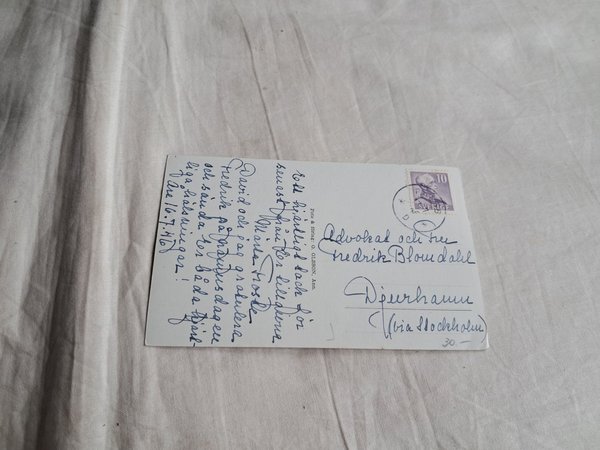 Ett hjärtligt tack för
senast från
David och jag gratulera
Fredrik på namnsdagen
och sända Er båda hjärt-
liga hälsningar!
Åre 16.7.46
Foto & förlag: O. OLSSON, Åre.
10
Advokat och Fru
Fredrik Blomdahl
Djurhamn
(via Stockholm)
30.—